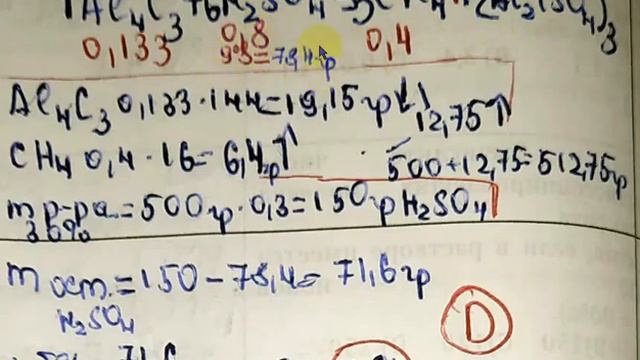 Al₄C₃ + 6H₂SO₄ → 3CH₄ + 2Al₂(SO₄)₃
0,133 0,8 0,4
98=78,4гр
Al₄C₃ 0,133·144=19,15гр↓ 12,75↑
CH₄ 0,4·16=6,4гр↑ 500+12,75=512,75гр
m р-ра=500гр·0,3=150гр H₂SO₄
30%
m ост.=150-78,4=71,6гр
H₂SO₄
D